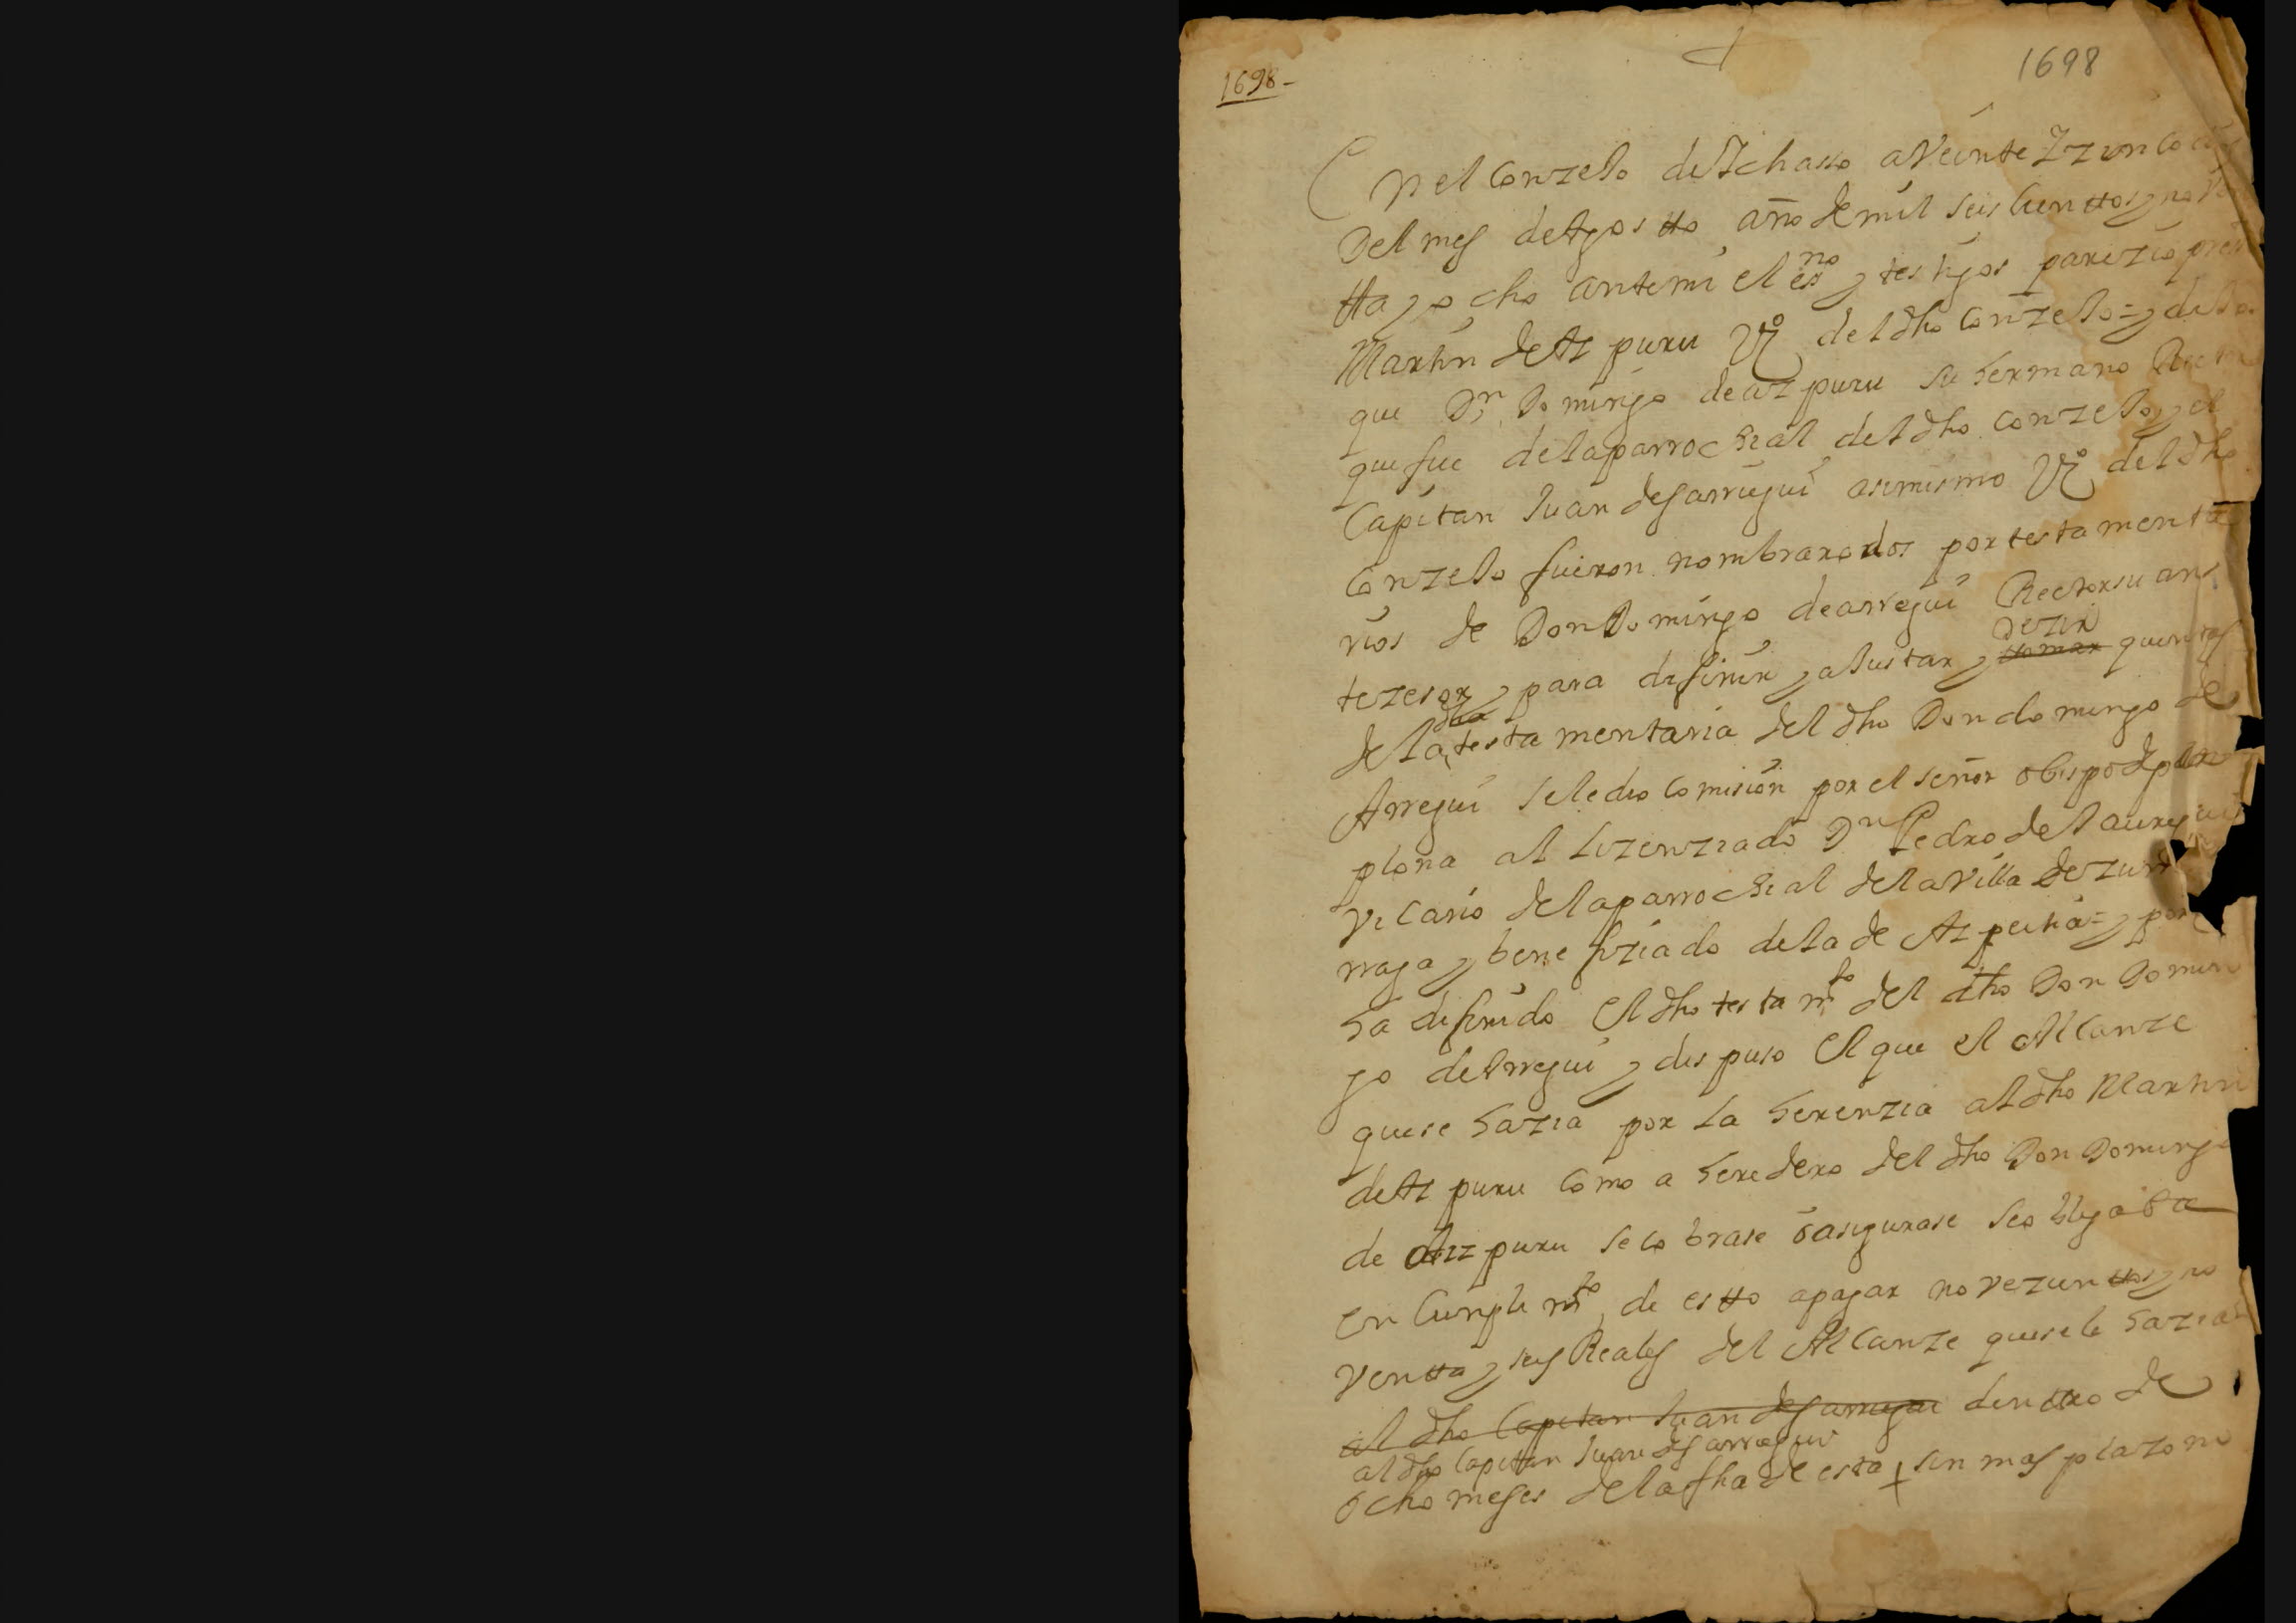 1698-
1698
En el Conzejo de Ichasso a Veinte Y zinco
del mes de Agostto año de mil seis cienttos y
tta y ocho ante mi el essno y testigos parezio
Martin de Azpuru Vº del dho Conzejo = y
que Dn Domingo de azpuru su hermano
que fue de la parrochial del dho conzejo, y el
Capitan Juan de Garaegui asimismo Vº del dho
Conzejo fueron nombrarados por testamenta
rios de Don Domingo de arregui Rector su an
tezesor y para difinir, y ajustar y tomar dezir quentas
de la dha testamentaria del dho Don domingo de
Arregui se le dio Comision por el señor obispo de pam
plona al lizenziado Dn Pedro de Jauregui
Vicario de la parrochial de la Villa de Zum
rraga y benefiziado de la de Azpeitia = y
ha difinido el dho testamto del dho Don Domin
go de Arregui y dispuso el que el Alcanze
que se hazia por la herenzia al dho Martin
de Azpuru como a heredero del dho Don Domingo
de Aizpuru se cobrase o asegurase se obligaba
en Cunplimto de estto a pagar novezienttos y no
ventta y seis Reales del Alcanze que se le hazia
al dho Capitan Juan de Garaegui dentro de
al dho Capitan Juan de Garraegui
ocho meses de la fha de esta + sin mas plazo ni